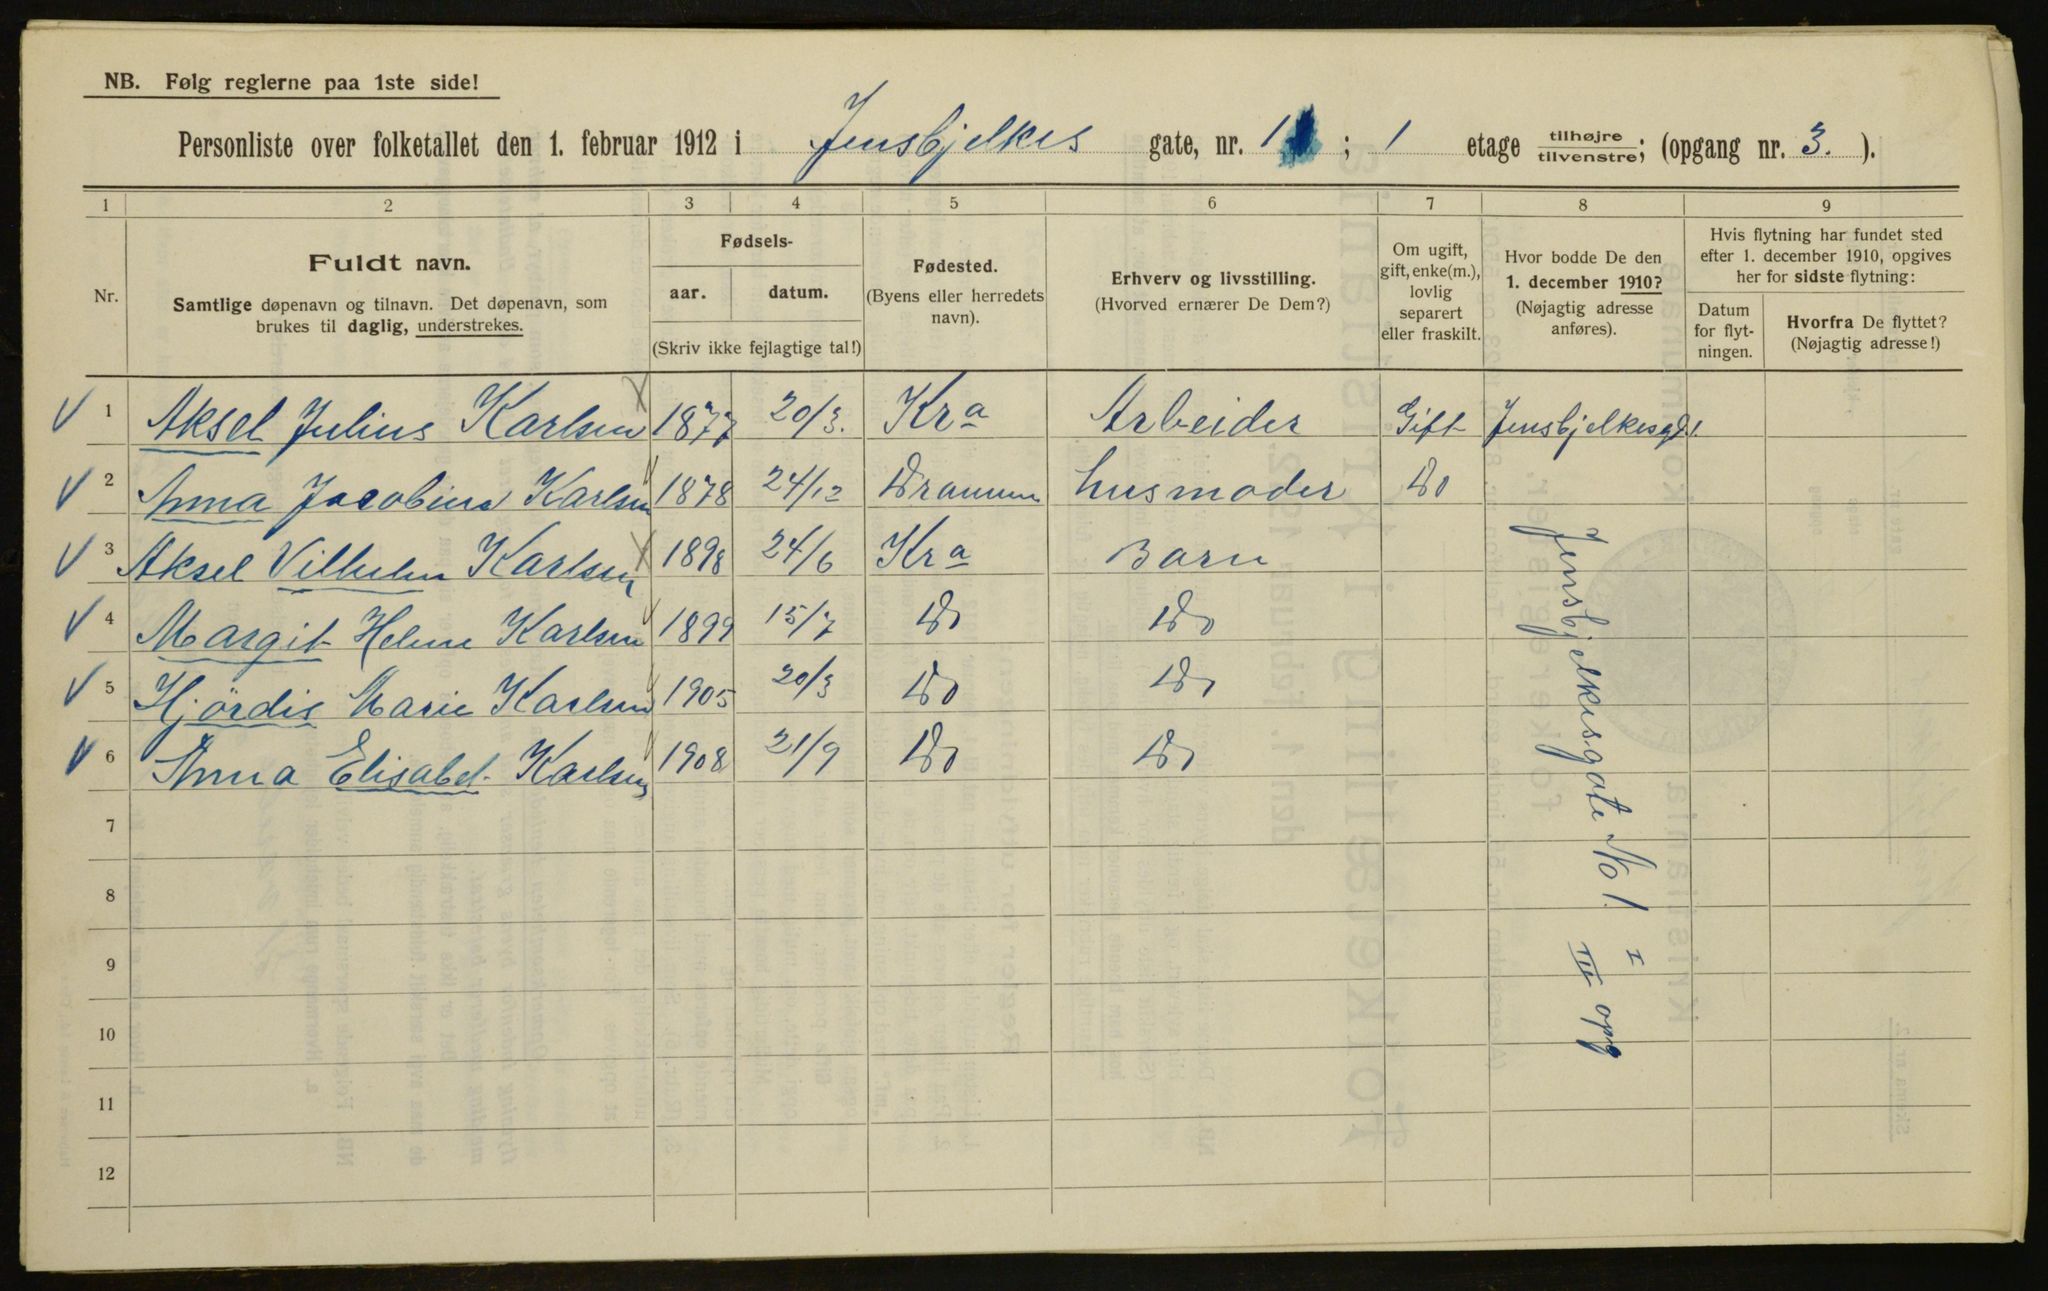 NB. Følg reglerne paa 1ste side!
Personliste over folketallet den 1. februar 1912 i Jensbjelkes gate, nr. 1 ; 1 etage tilhøjre tilvenstre; (opgang nr. 3. ).
1 2 3 4 5 6 7 8 9
Nr.
Fuldt navn.
Samtlige døpenavn og tilnavn. Det døpenavn, som
brukes til daglig, understrekes.
Fødsels-
aar. datum.
(Skriv ikke fejlagtige tal!)
Fødested.
(Byens eller herredets
navn).
Erhverv og livsstilling.
(Hvorved ernærer De Dem?)
Om ugift,
gift, enke(m.),
lovlig
separert
eller fraskilt.
Hvor bodde De den
1. december 1910?
(Nøjagtig adresse
anføres).
Hvis flytning har fundet sted
efter 1. december 1910, opgives
her for sidste flytning:
Datum
for flyt-
ningen.
Hvorfra De flyttet?
(Nøjagtig adresse!)
1 Aksel Julius Karlsen 1877 20/3. Kra Arbeider Gift Jensbjelkesgd 1.
2 Anna Jacobine Karlsen 1878 24/12 Drammen husmoder Do
3 Aksel Vilhelm Karlsen 1898 24/6 Kra Barn
4 Margit Helene Karlsen 1899 15/7 Do Do
5 Hjördis Marie Karlsen 1905 20/3 Do Do
6 Anna Elisabet Karlsen 1908 21/9 Do Do
Jensbjelkesgate No 1 I
III opg
7
8
9
10
11
12